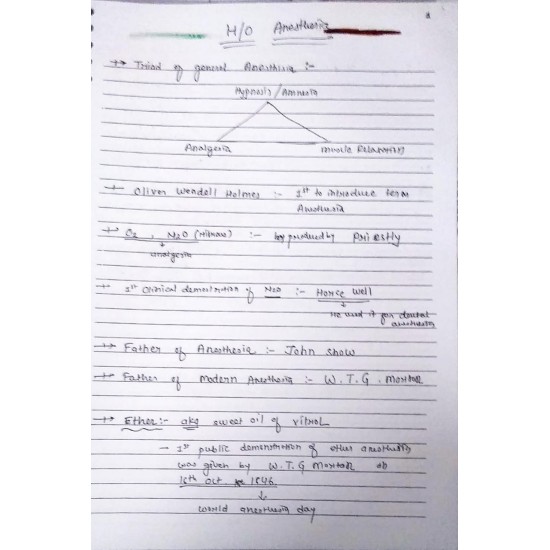 H/O Anesthesia
→ Triad of general Anesthesia :-
Hypnosis / Amnesia
Analgesia muscle Relaxation
→ Oliver Wendell Holmes :- 1st to introduce term
Anesthesia
→ O2 , N2O (Nitrous) :- by produced by Priestly
analgesia
→ 1st Clinical demonstration of N2O :- Horce Well
He used it for dental
anesthesia
→ Father of Anesthesia :- John Snow
→ Father of Modern Anesthesia :- W.T.G. Mortan
→ Ether :- aka sweet oil of vitrol
- 1st public demonstration of ether anesthesia
was given by W.T.G Mortan on
16th Oct 1846
↓
World anesthesia day